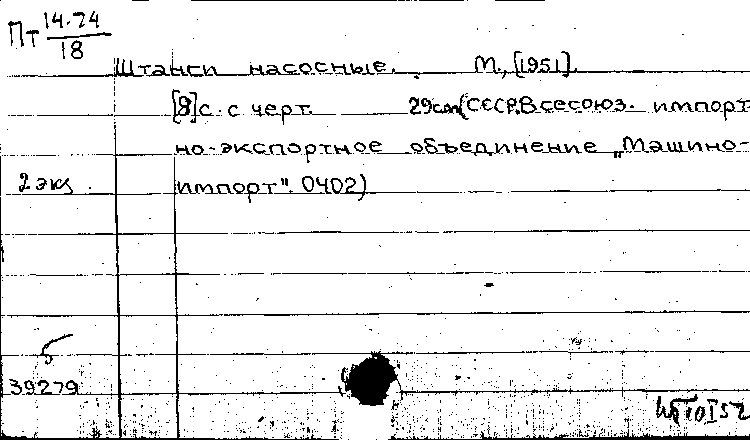 Пт 14-74/18
Штанги насосные. М., [1951].
[8]с. с черт. 29см (СССР. Всесоюз. импорт-
но-экспортное объединение „Машино-
2 экз. импорт". 0402)
б
39279
10 I 52